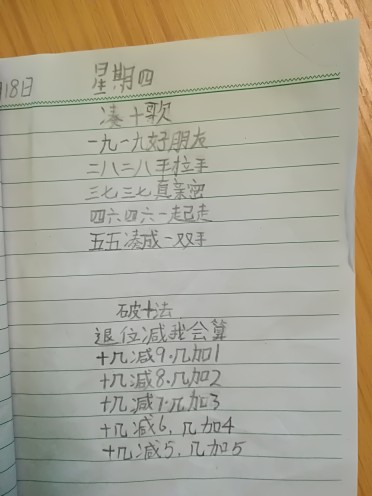 月18日 星期四
凑十歌
一九一九好朋友
二八二八手拉手
三七三七真亲密
四六四六一起走
五五凑成一双手
破十法
退位减我会算
十几减9.几加1
十几减8.几加2
十几减7.几加3
十几减6,几加4
十几减5,几加5